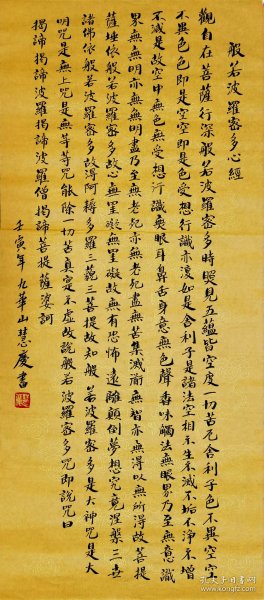 般若波羅密多心經
觀自在菩薩行深般若波羅密多時照見五蘊皆空度一切苦厄舍利子色不異空空
不異色色即是空空即是色受想行識亦復如是舍利子是諸法空相不生不滅不垢不淨不增
不減是故空中無色無受想行識無眼耳鼻舌身意無色聲香味觸法無眼界乃至無意識
界無無明亦無無明盡乃至無老死亦無老死盡無苦集滅道無智亦無得以無所得故菩提
薩埵依般若波羅密多故心無罣礙無罣礙故無有恐怖遠離顛倒夢想究竟涅槃三世
諸佛依般若波羅密多故得阿耨多羅三藐三菩提故知般若波羅密多是大神咒是大
明咒是無上咒是無等等咒能除一切苦真實不虛故說般若波羅密多咒即說咒曰
揭諦揭諦波羅揭諦波羅僧揭諦菩提薩婆訶
壬寅年九華山慧慶書